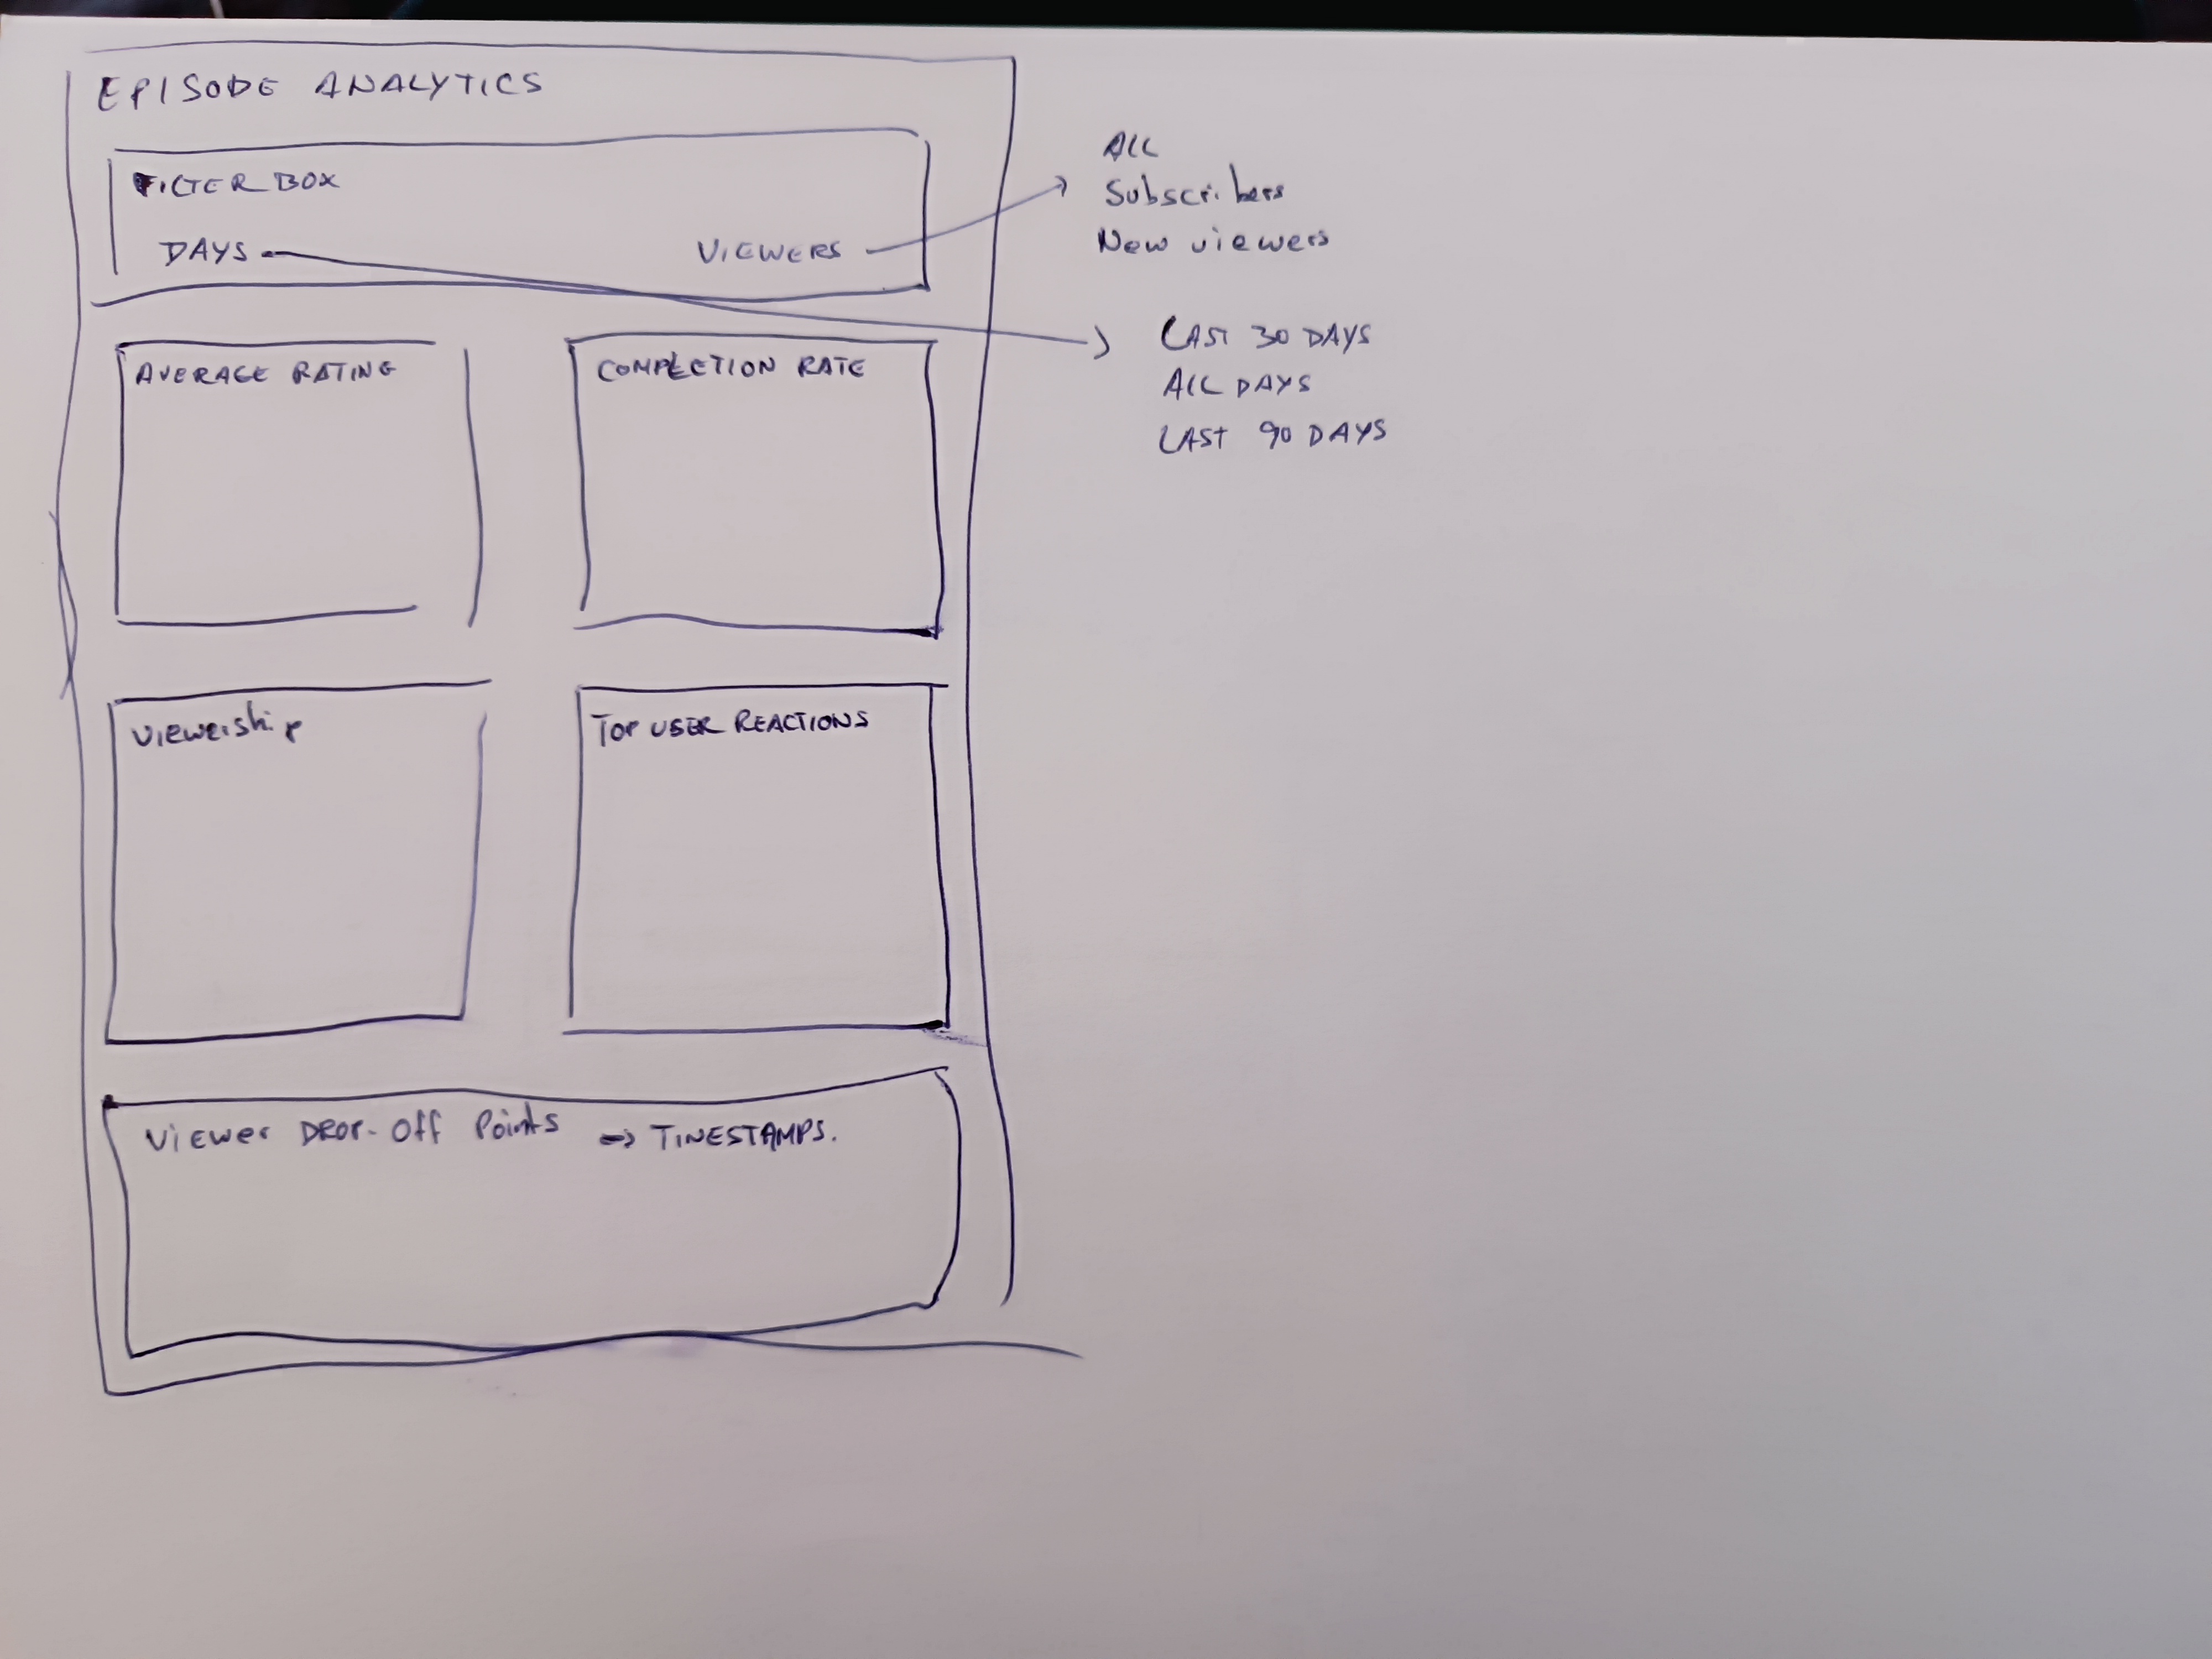 EPISODE ANALYTICS
FILTER BOX
DAYS VIEWERS
All
Subscribers
New viewers
LAST 30 DAYS
ALL DAYS
LAST 90 DAYS
AVERAGE RATING COMPLETION RATE
Viewership TOP USER REACTIONS
Viewer DROP-Off Points => TINESTAMPS.